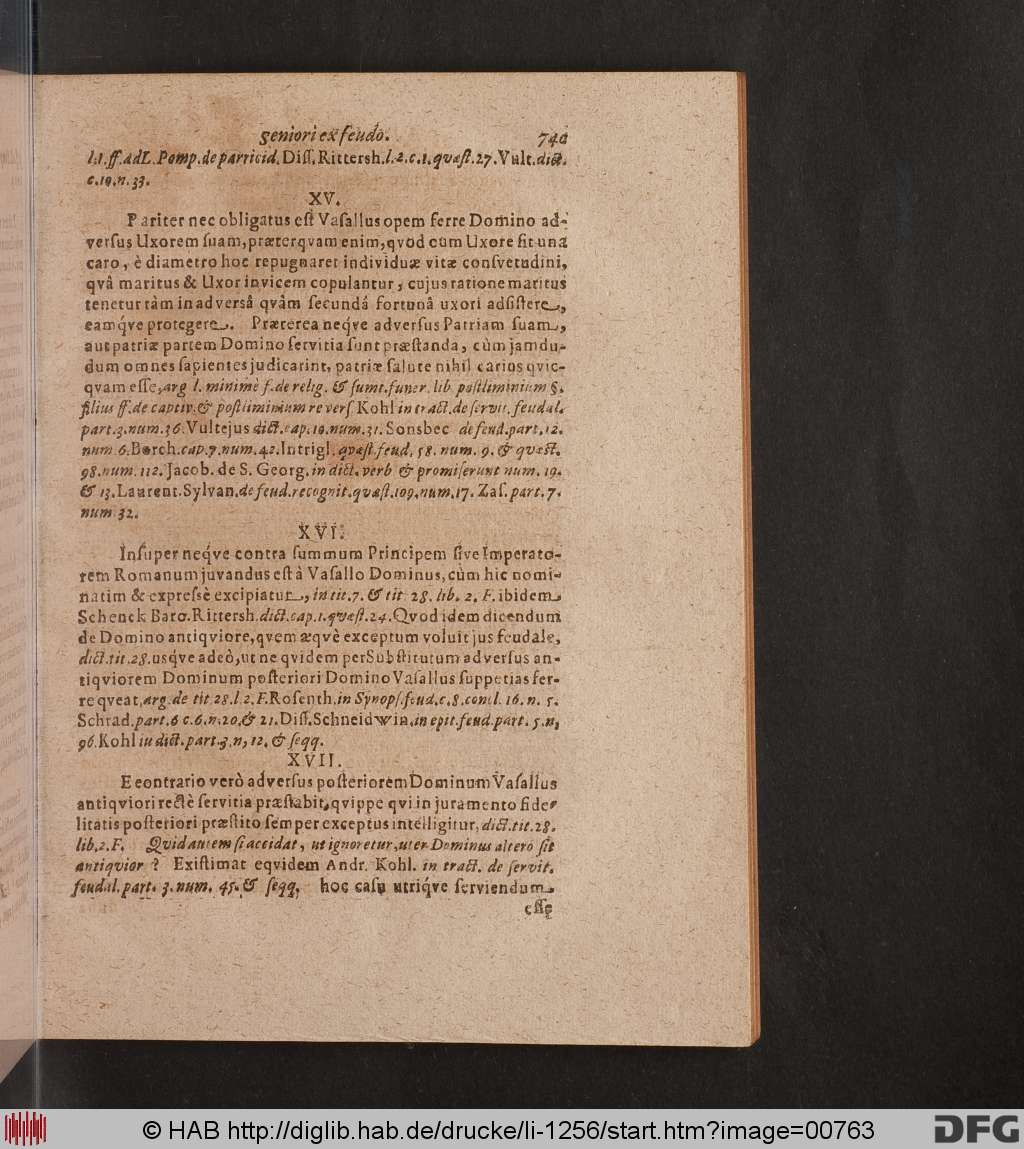 seniori ex feudo. 741
l.1.ff.ad L. Pomp. de parricid. Diſſ. Rittersh. l.2.c.1. qvæſt. 27. Vult. dict.
c.19.n.33.
XV.
Pariter nec obligatus eſt Vaſallus opem ferre Domino ad-
verſus Uxorem ſuam, præterqvam enim, qvòd cùm Uxore ſit una
caro, è diametro hoc repugnaret individuæ vitæ conſvetudini,
qvâ maritus & Uxor invicem copulantur, cujus ratione maritus
tenetur tàm in adversâ qvâm ſecundâ fortunâ uxori adſiſtere,
eamq́ve protegere. Præterea neqve adverſus Patriam ſuam,
aut patriæ partem Domino ſervitia ſunt præſtanda, cùm jamdu-
dum omnes ſapientes judicarint, patriæ ſalute nihil carius qvic-
qvam eſſe, arg l. minimè f. de relig. & ſumt. funer. lib. poſtliminium §.
filius ff. de captiv. & poſtliminium reverſ Kohl in tract. de ſervit. feudal.
part.3.num.36. Vultejus dict. cap.19.num.31. Sonsbec de feud. part.12.
num.6. Borch. cap.7.num.42. Intrigl. qvæſt. feud. 58. num. 9. & qvæſt.
98.num. 112. Jacob. de S. Georg. in dict. verb & promiſerunt num. 19.
& 13. Laurent. Sylvan. de feud. recognit. qvæſt. 109. num. 17. Zaſ. part. 7.
num 32.
XVI.
Inſuper neq́ve contra ſummum Principem ſive Imperato-
rem Romanum juvandus eſt à Vaſallo Dominus, cùm hic nomi-
natim & expreſsè excipiatur, in tit.7. & tit 28. lib. 2. F. ibidem
Schenck Baro. Rittersh. dict. cap. 1. qvæſt. 24. Qvod idem dicendum
de Domino antiqviore, qvem æqvè exceptum voluit jus feudale,
dict. tit.28. usq́ve adeò, ut ne qvidem per Subſtitutum adverſus an-
tiqviorem Dominum poſteriori Domino Vaſallus ſuppetias fer-
re qveat, arg. de tit 28.l.2.F. Roſenth. in Synopſ. feud. c.8. concl. 16. n. 5.
Schrad. part. 6 c.6.n.20, & 21. Diſſ. Schneidwin. in epit. feud. part. 5. n,
96. Kohl iu dict. part.3.n, 12. & ſeqq.
XVII.
E contrario verò adverſus poſteriorem Dominum Vaſallus
antiqviori rectè ſervitia præſtabit, qvippe qvi in juramento fide-
litatis poſteriori præſtito ſemper exceptus intelligitur, dict. tit. 28.
lib.2. F. Qvid autem ſi accidat, ut ignoretur, uter Dominus altero ſit
antiqvior? Exiſtimat eqvidem Andr. Kohl. in tract. de ſervit.
feudal. part. 3. num. 45. & ſeqq. hoc caſu utriq́ve ſerviendum
eſſe
© HAB http://diglib.hab.de/drucke/li-1256/start.htm?image=00763
DFG